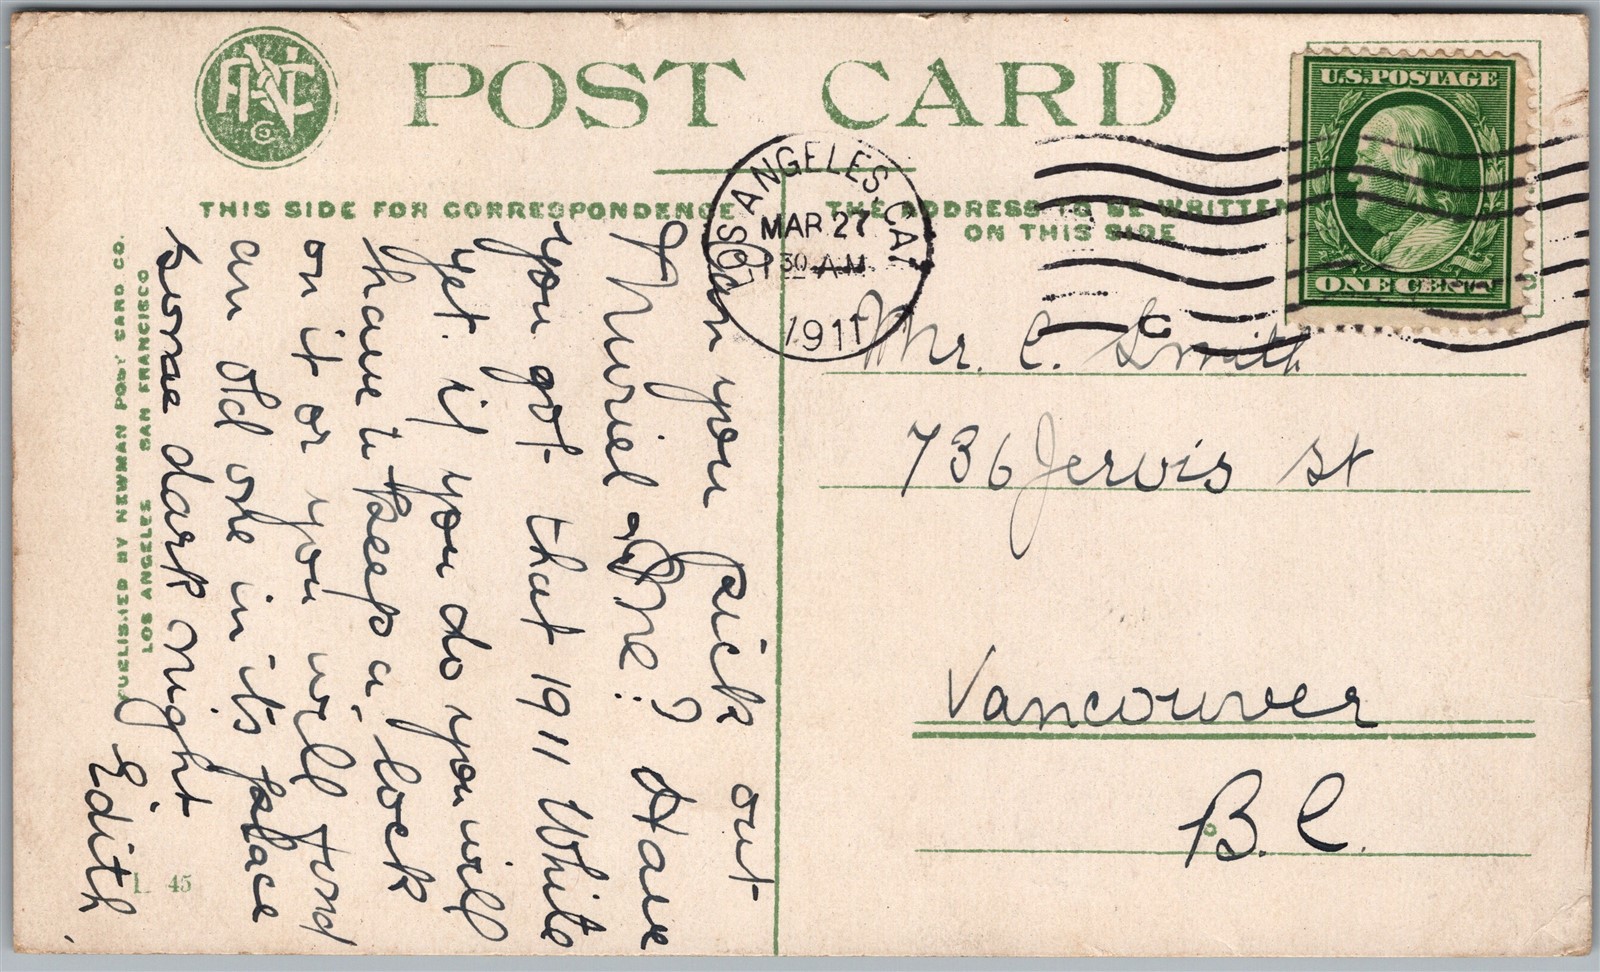 POST CARD
THIS SIDE FOR CORRESPONDENCE
THE ADDRESS TO BE WRITTEN
ON THIS SIDE
U.S. POSTAGE
ONE CENT
LOS ANGELES, CAL
MAR 27
30 A.M.
1911
PUBLISHED BY NEWMAN POST CARD CO.
LOS ANGELES SAN FRANCISCO
Can you pick out
Muriel and Me? Have
you got that 1911 White
yet. if you do you will
have to keep a lock
on it or you will find
an old one in its place
some dark night
Edith
L 45
Mr. C. Smith
736 Jervis St
Vancouver
B.C.